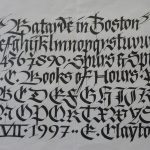 Batarde in Boston
efghijklmnopqrstuvw
4567890 · Spurs & Sp
E. Books of Hours · P
BCDEFGHIJK
NOPQRTXYS
VII · 1997 · E. Clayto